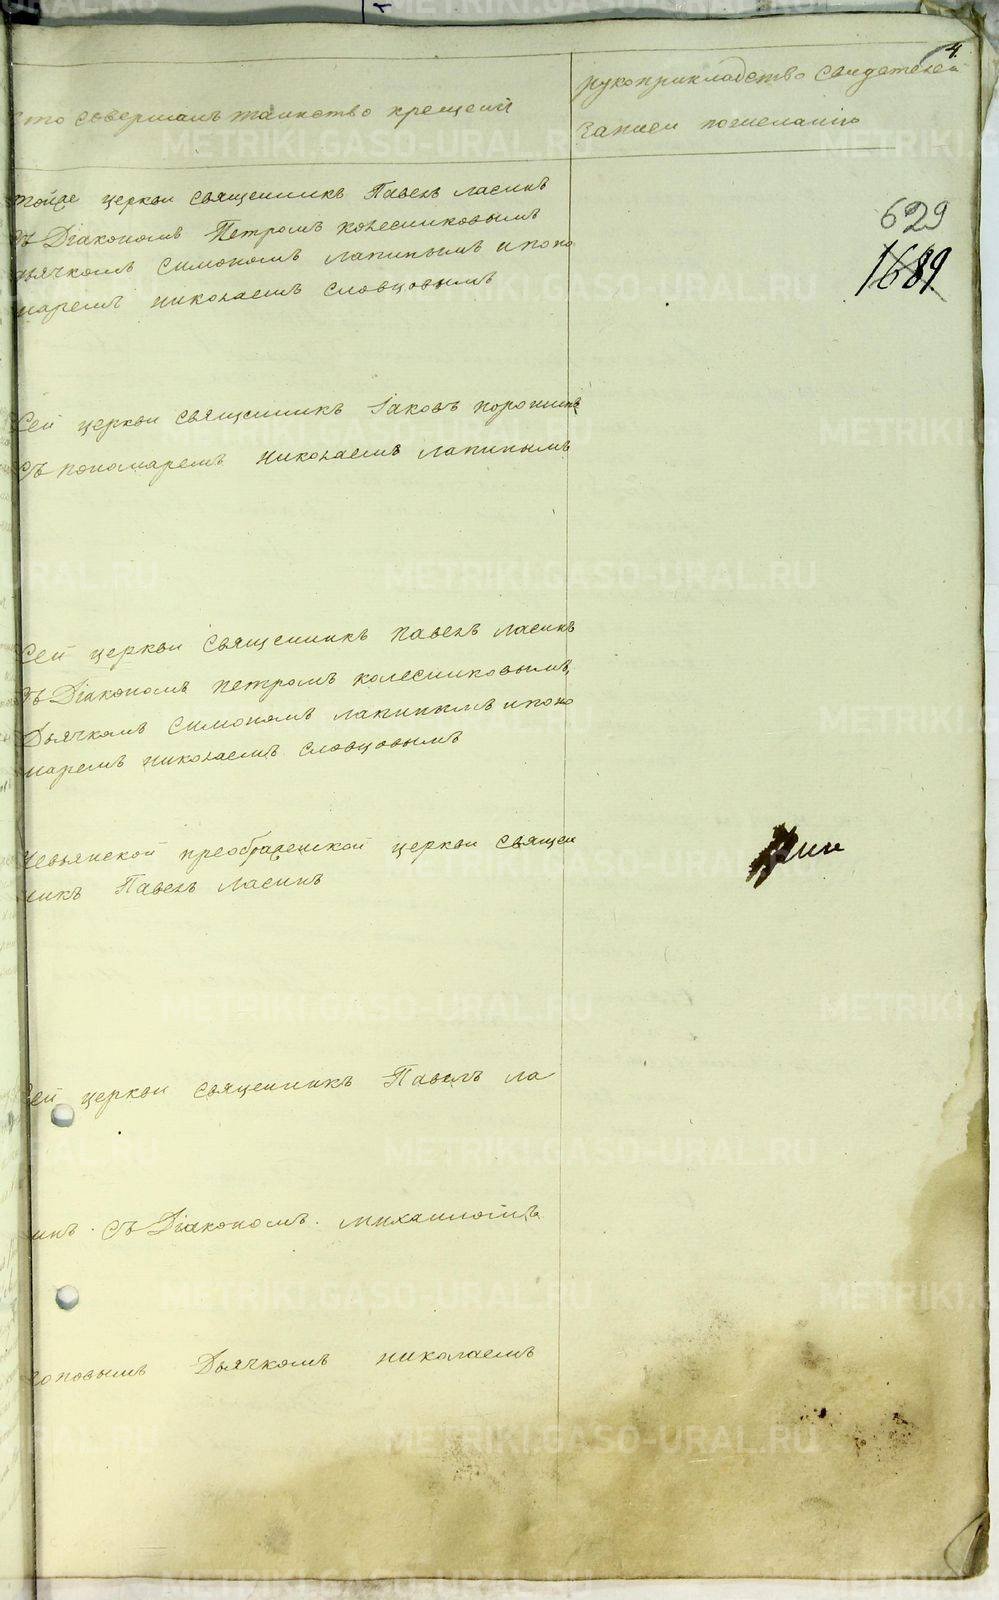 4.
кто совершалъ таинство крещенія
рукоприкладство свидетелей
записи пожеланію
тойже церкви священникъ Павелъ Ласинъ
съ Діакономъ Петромъ колесниковымъ
дьячкомъ Симономъ лапинымъ и поно
маремъ николаемъ словцовымъ
629
1689
Сей церкви священникъ Іаковъ порошинъ
съ пономаремъ николаемъ лапинымъ
Сей церкви священникъ павелъ ласинъ
съ Діакономъ петромъ колесниковымъ
Дьячкомъ симономъ лапинымъ и поно
маремъ николаемъ словцовымъ
Невьянской преображенской церкви священ
никъ Павелъ Ласинъ
Сей церкви священникъ Павелъ ла
синъ съ Діакономъ михаиломъ
поповымъ Дьячкомъ николаемъ
METRIKI.GASO-URAL.RU